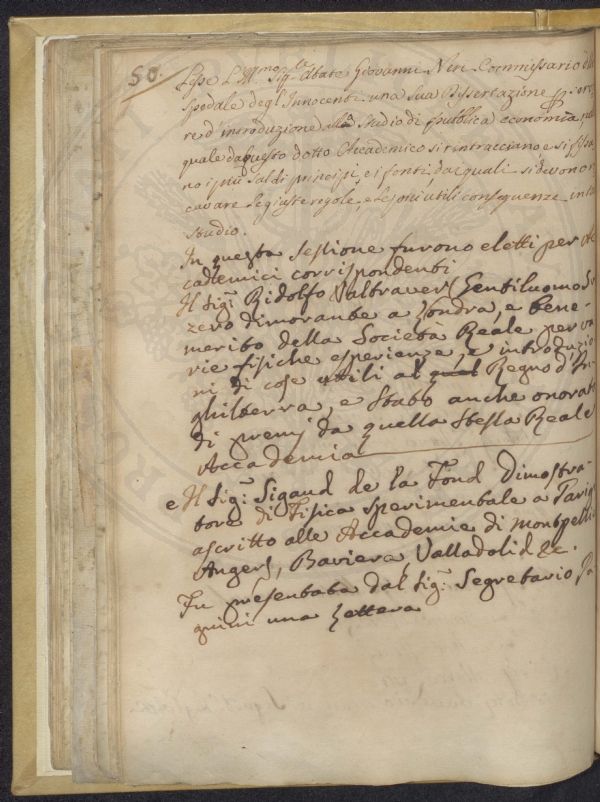 50.
Lesse L'Ill.mo Sig. Abate Giovanni Neri Commissario dello
Spedale degl'Innocenti una sua Dissertazione p. serv
re d'introduzione allo Studio di pubblica economia
quale da questo dotto Accademico si rintracciano, e si fissa
no i più saldi principj, e i fonti, dai quali si devono
cavare le giuste regole, e le più utili conseguenze in
Studio.
In questa sessione furono eletti per Ac
cademici corrispondenti
Il Sig: Ridolfo Valtravers Gentiluomo Sv
zero dimorante a Londra, e bene-
merito della Società Reale per va
rie fisiche esperienze, e introduzio
ni di cose utili al Regno d'In
ghilterra, e stato anche onorato
di premj da quella stessa Reale
Accademia
e Il Sig: Sigaud de la Fond Dimostra-
tore di Fisica sperimentale a Parigi
ascritto alle Accademie di Montpellie
Angers, Baviera, Valladolid &c.
Fu presentata dal Sig: Segretario Pa
gnini una Lettera